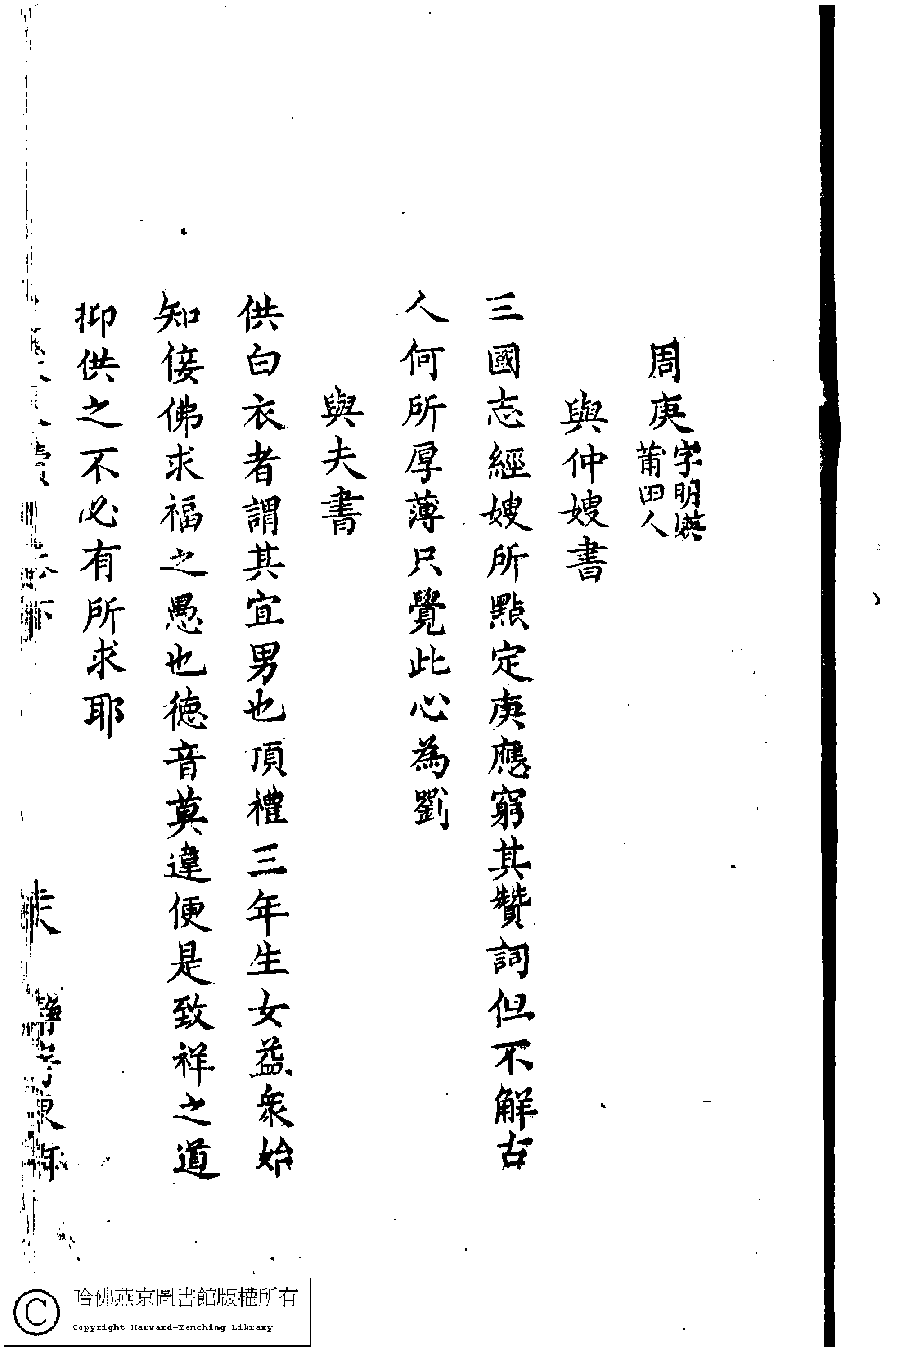 周庚字明媖
莆田人
與仲嫂書
三國志經嫂所點定庚應窮其贊詞但不解古
人何所厚薄只覺此心為劉
與夫書
供白衣者謂其宜男也頂禮三年生女益衆始
知佞佛求福之愚也德音莫違便是致祥之道
抑供之不必有所求耶
哈佛燕京圖書館版權所有
Copyright Harvard-Yenching Library